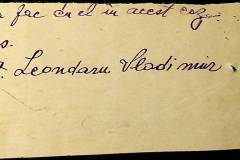 fac cu el în acest caz
Leondaru Vladimir